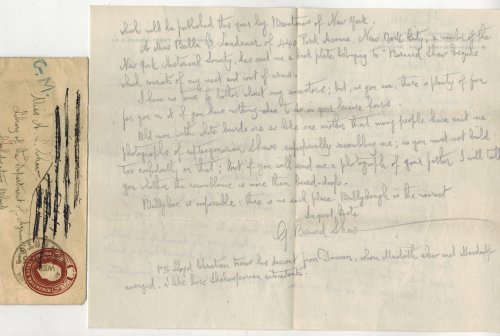 which will be published this year by Brentanos of New York.
A Miss Bella C. Landauer of Park Avenue, New York City, a member of the
New York Historical Society, has sent me a book plate belonging to "Bernard Shaw Esquire"
which consists of my crest and coat of arms.
I have no time to bother about my ancestors; but, as you see, there is plenty of fun
for you in it if you have nothing else to do in your leisure hours.
Old men with white beards are so like one another that many people have sent me
photographs of septuagenarian Shaws superficially resembling me; so you must not build
too confidently on that; but if you will send me a photograph of your father I will tell
you whether the resemblance is more than beard-deep.
is impossible: there is no such place. Ballybough is the nearest
Dublin
G. Bernard Shaw
P.S. Lloyd his descent from Duncan, whom Macbeth slew and Macduff
avenged. I like these Shakespearean antecedents.
G.M.
Miss A. Shaw
Library of the Department of